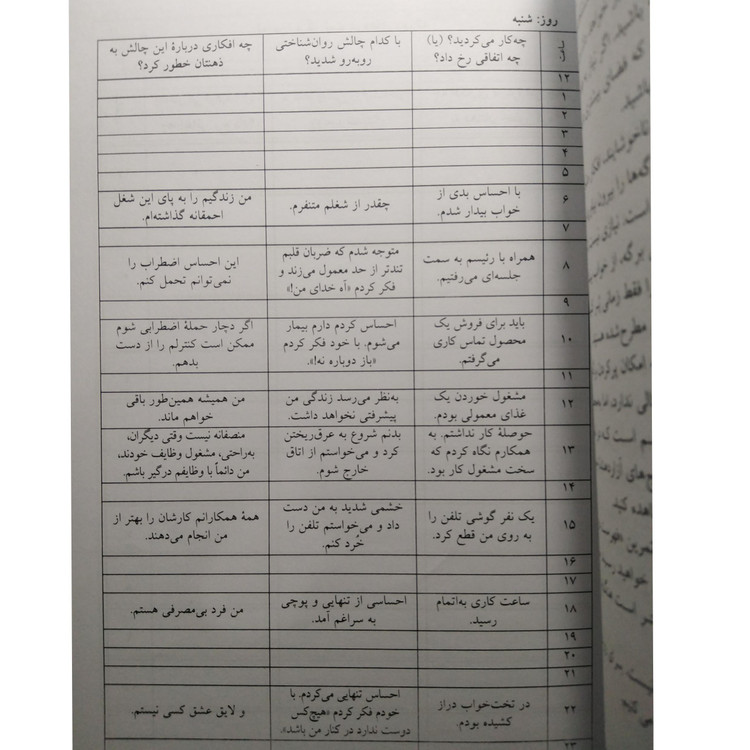 روز: شنبه
ساعت
چه‌کار می‌کردید؟ (یا)
چه اتفاقی رخ داد؟
با کدام چالش روان‌شناختی
روبه‌رو شدید؟
چه افکاری دربارهٔ این چالش به
ذهنتان خطور کرد؟
۱۲
۱
۲
۳
۴
۵
۶
با احساس بدی از
خواب بیدار شدم.
چقدر از شغلم متنفرم.
من زندگیم را به پای این شغل
احمقانه گذاشته‌ام.
۷
۸
همراه با رئیسم به سمت
جلسه‌ای می‌رفتیم.
متوجه شدم که ضربان قلبم
تندتر از حد معمول می‌زند و
فکر کردم «آه خدای من!»
این احساس اضطراب را
نمی‌توانم تحمل کنم.
۹
۱۰
باید برای فروش یک
محصول تماس کاری
می‌گرفتم.
احساس کردم دارم بیمار
می‌شوم. با خود فکر کردم
«باز دوباره نه!».
اگر دچار حملهٔ اضطرابی شوم
ممکن است کنترلم را از دست
بدهم.
۱۱
۱۲
مشغول خوردن یک
غذای معمولی بودم.
به‌نظر می‌رسد زندگی من
پیشرفتی نخواهد داشت.
من همیشه همین‌طور باقی
خواهم ماند.
۱۳
حوصلهٔ کار نداشتم. به
همکارم نگاه کردم که
سخت مشغول کار بود.
بدنم شروع به عرق‌ریختن
کرد و می‌خواستم از اتاق
خارج شوم.
منصفانه نیست وقتی دیگران،
به‌راحتی، مشغول وظایف خودند،
من دائماً با وظایفم درگیر باشم.
۱۴
۱۵
یک نفر گوشی تلفن را
به روی من قطع کرد.
خشمی شدید به من دست
داد و می‌خواستم تلفن را
خُرد کنم.
همهٔ همکارانم کارشان را بهتر از
من انجام می‌دهند.
۱۶
۱۷
۱۸
ساعت کاری به‌اتمام
رسید.
احساسی از تنهایی و پوچی
به سراغم آمد.
من فرد بی‌مصرفی هستم.
۱۹
۲۰
۲۱
۲۲
در تخت‌خواب دراز
کشیده بودم.
احساس تنهایی می‌کردم. با
خودم فکر کردم «هیچ‌کس
دوست ندارد در کنار من باشد».
و لایق عشق کسی نیستم.
۲۳